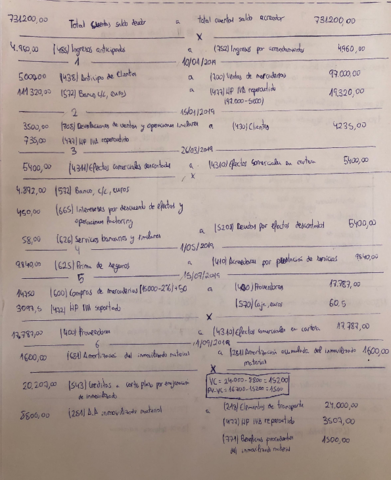 731200,00 Total cuentas saldo deudor a total cuentas saldo acreedor 731200,00
x
4.960,00 (485) Ingresos anticipados a (752) Ingresos por arrendamiento 4960,00
1 10/01/2019
5000,00 (438) Anticipo de clientes a (700) Ventas de mercaderías 97000,00
111.320,00 (572) Banco c/c, euros a (477) HP IVA repercutido 19320,00
(92.000-5000)
2 15/01/2019
3500,00 (708) Devoluciones de ventas y operaciones similares a (430) Clientes 4235,00
735,00 (477) HP IVA repercutido
3 26/03/2019
5400,00 (4311) Efectos comerciales descontados a (4310) Efectos comerciales en cartera 5400,00
x
4.892,00 (572) Banco, c/c, euros
450,00 (665) Intereses por descuento de efectos y
operaciones factoring
a (5208) Deudas por efectos descontados 5400,00
58,00 (626) Servicios bancarios y similares
4 1/05/2019
9840,00 (625) Prima de seguros a (410) Acreedores por prestación de servicios 9840,00
5 15/07/2019
14750 (600) Compras de mercaderías a (400) Proveedores 17.787,00
(472) HP IVA soportado (570) Caja, euros 60,5
17.787,00 (400) Proveedores a (4310) Efectos comerciales en cartera 17.787,00
6 1/09/2019
1600,00 (681) Amortización del inmovilizado material a (281) Amortización acumulada del inmovilizado material 1600,00
x
VC = 24.000-8800 = 15.200
(543) Créditos a corto plazo por enajenación
de inmovilizado
(281) A.A inmovilizado material a (218) Elementos de transporte 24.000,00
(477) HP IVA repercutido
(771) Beneficios procedentes 1500,00
del inmovilizado material